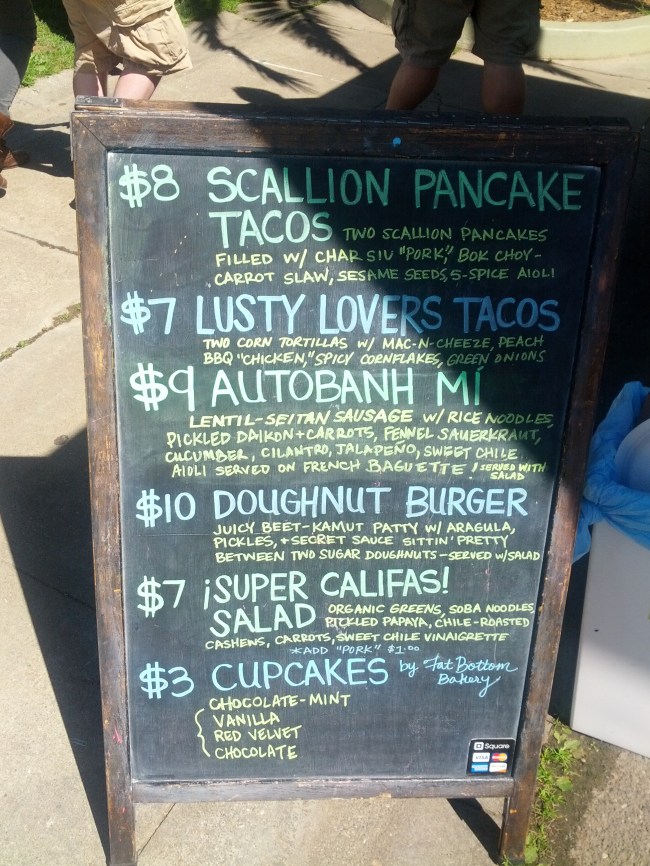 $8 SCALLION PANCAKE
TACOS TWO SCALLION PANCAKES
FILLED W/ CHAR SIU "PORK", BOK CHOY-
CARROT SLAW, SESAME SEEDS, 5-SPICE AIOLI
$7 LUSTY LOVERS TACOS
TWO CORN TORTILLAS W/ MAC-N-CHEEZE, PEACH
BBQ "CHICKEN," SPICY CORNFLAKES, GREEN ONIONS
$9 AUTOBANH MÍ
LENTIL-SEITAN SAUSAGE W/ RICE NOODLES,
PICKLED DAIKON + CARROTS, FENNEL SAUERKRAUT,
CUCUMBER, CILANTRO, JALAPEÑO, SWEET CHILE
AIOLI SERVED ON FRENCH BAGUETTE / SERVED WITH
SALAD
$10 DOUGHNUT BURGER
JUICY BEET-KAMUT PATTY W/ ARAGULA,
PICKLES, + SECRET SAUCE SITTIN' PRETTY
BETWEEN TWO SUGAR DOUGHNUTS - SERVED W/ SALAD
$7 ¡SUPER CALIFAS!
SALAD ORGANIC GREENS, SOBA NOODLES,
PICKLED PAPAYA, CHILE-ROASTED
CASHEWS, CARROTS, SWEET CHILE VINAIGRETTE
*ADD "PORK" $1.00
$3 CUPCAKES by Fat Bottom
Bakery
CHOCOLATE-MINT
VANILLA
RED VELVET
CHOCOLATE
Square
VISA